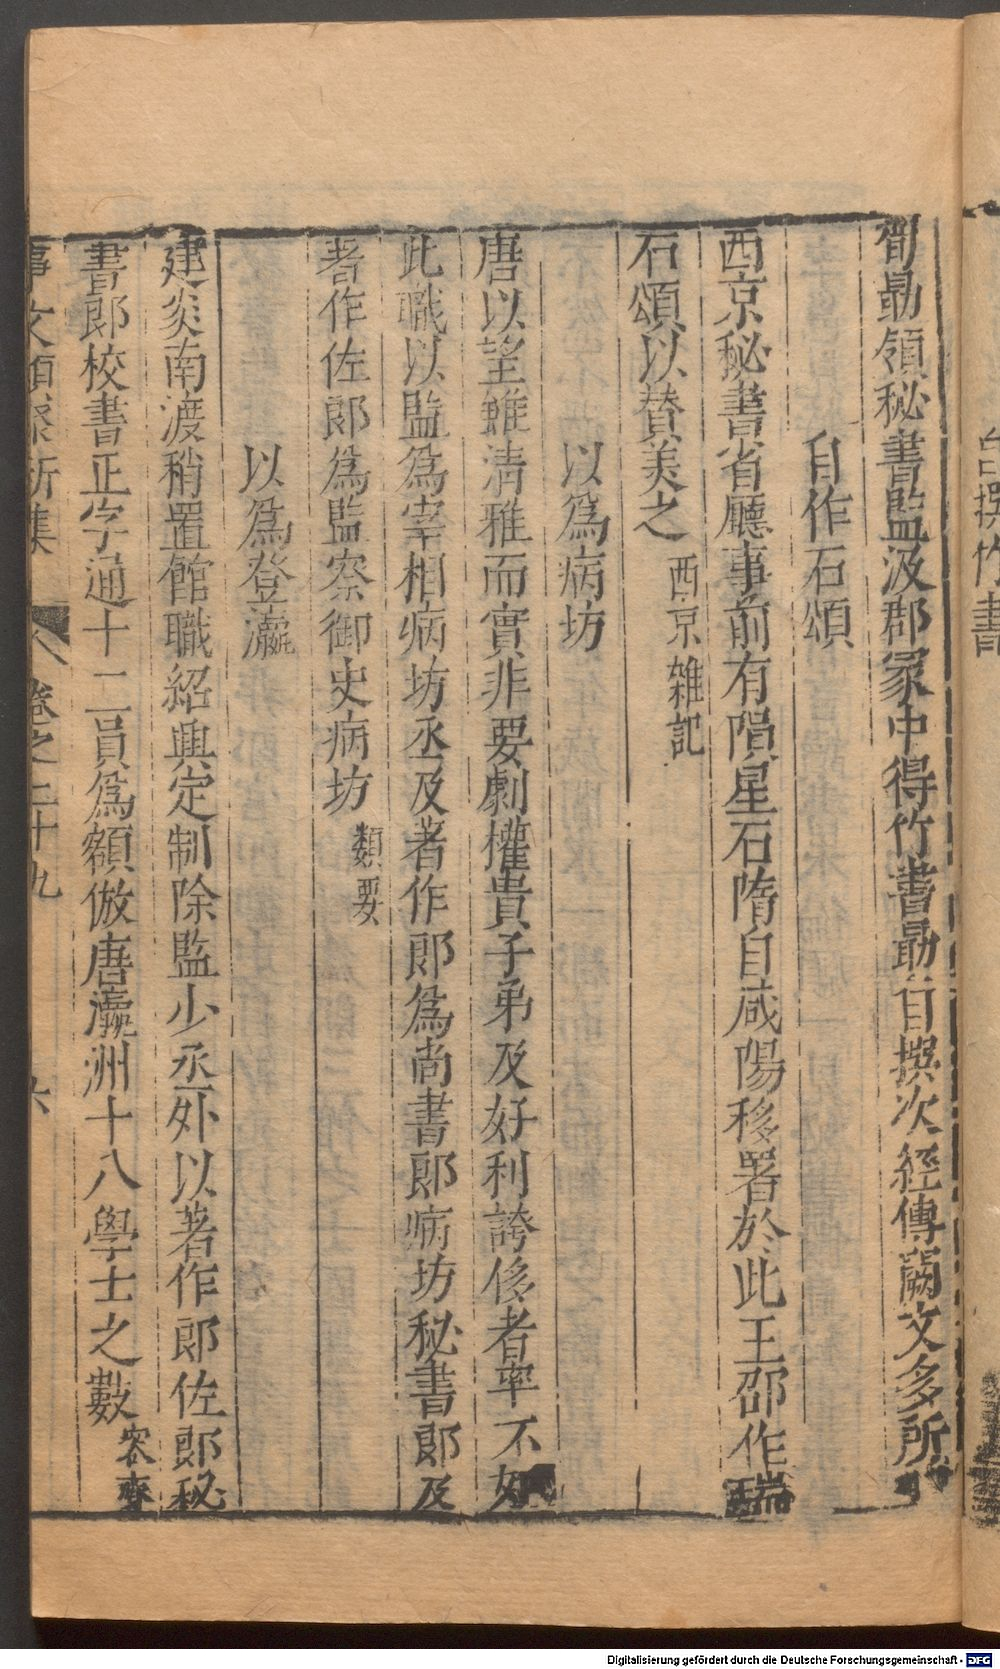 自撰竹書
荀勗領秘書監汲郡冢中得竹書勗自撰次經傳闕文多所
自作石頌
西京秘書省廳事前有隕星石隋自咸陽移署於此王邵作瑞
石頌以賛美之 西京雜記
以爲病坊
唐以望雖清雅而實非要劇權貴子弟及好利誇侈者率不好
此職以監爲宰相病坊丞及著作郎爲尚書郎病坊秘書郎及
著作佐郎爲監察御史病坊 類要
以爲登瀛
建炎南渡稍置館職紹興定制除監少丞外以著作郎佐郎秘
書郎校書正字通十二員爲額倣唐瀛洲十八學士之數 容齋
事文類聚新集 卷之二十九 六
Digitalisierung gefördert durch die Deutsche Forschungsgemeinschaft - DFG